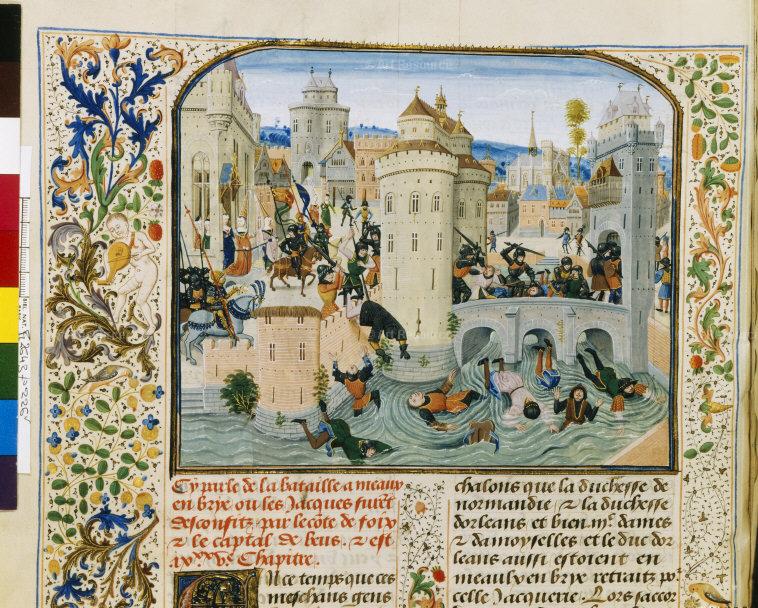 Cy parle de la bataille a meaulx
en brye ou les Jacques furēt
desconfitz par le cōte de foix
& le captal de beus. & est
Chapitre.
En ce temps que ces
meschans gens
chalons que la duchesse de
normandie & la duchesse
dorleans et bien iijᶜ dames
& damoyselles et le duc dor
leans aussi estoient en
meaulx en brye retraitz poᵘʳ
celle Jacquerie. Lors saccor